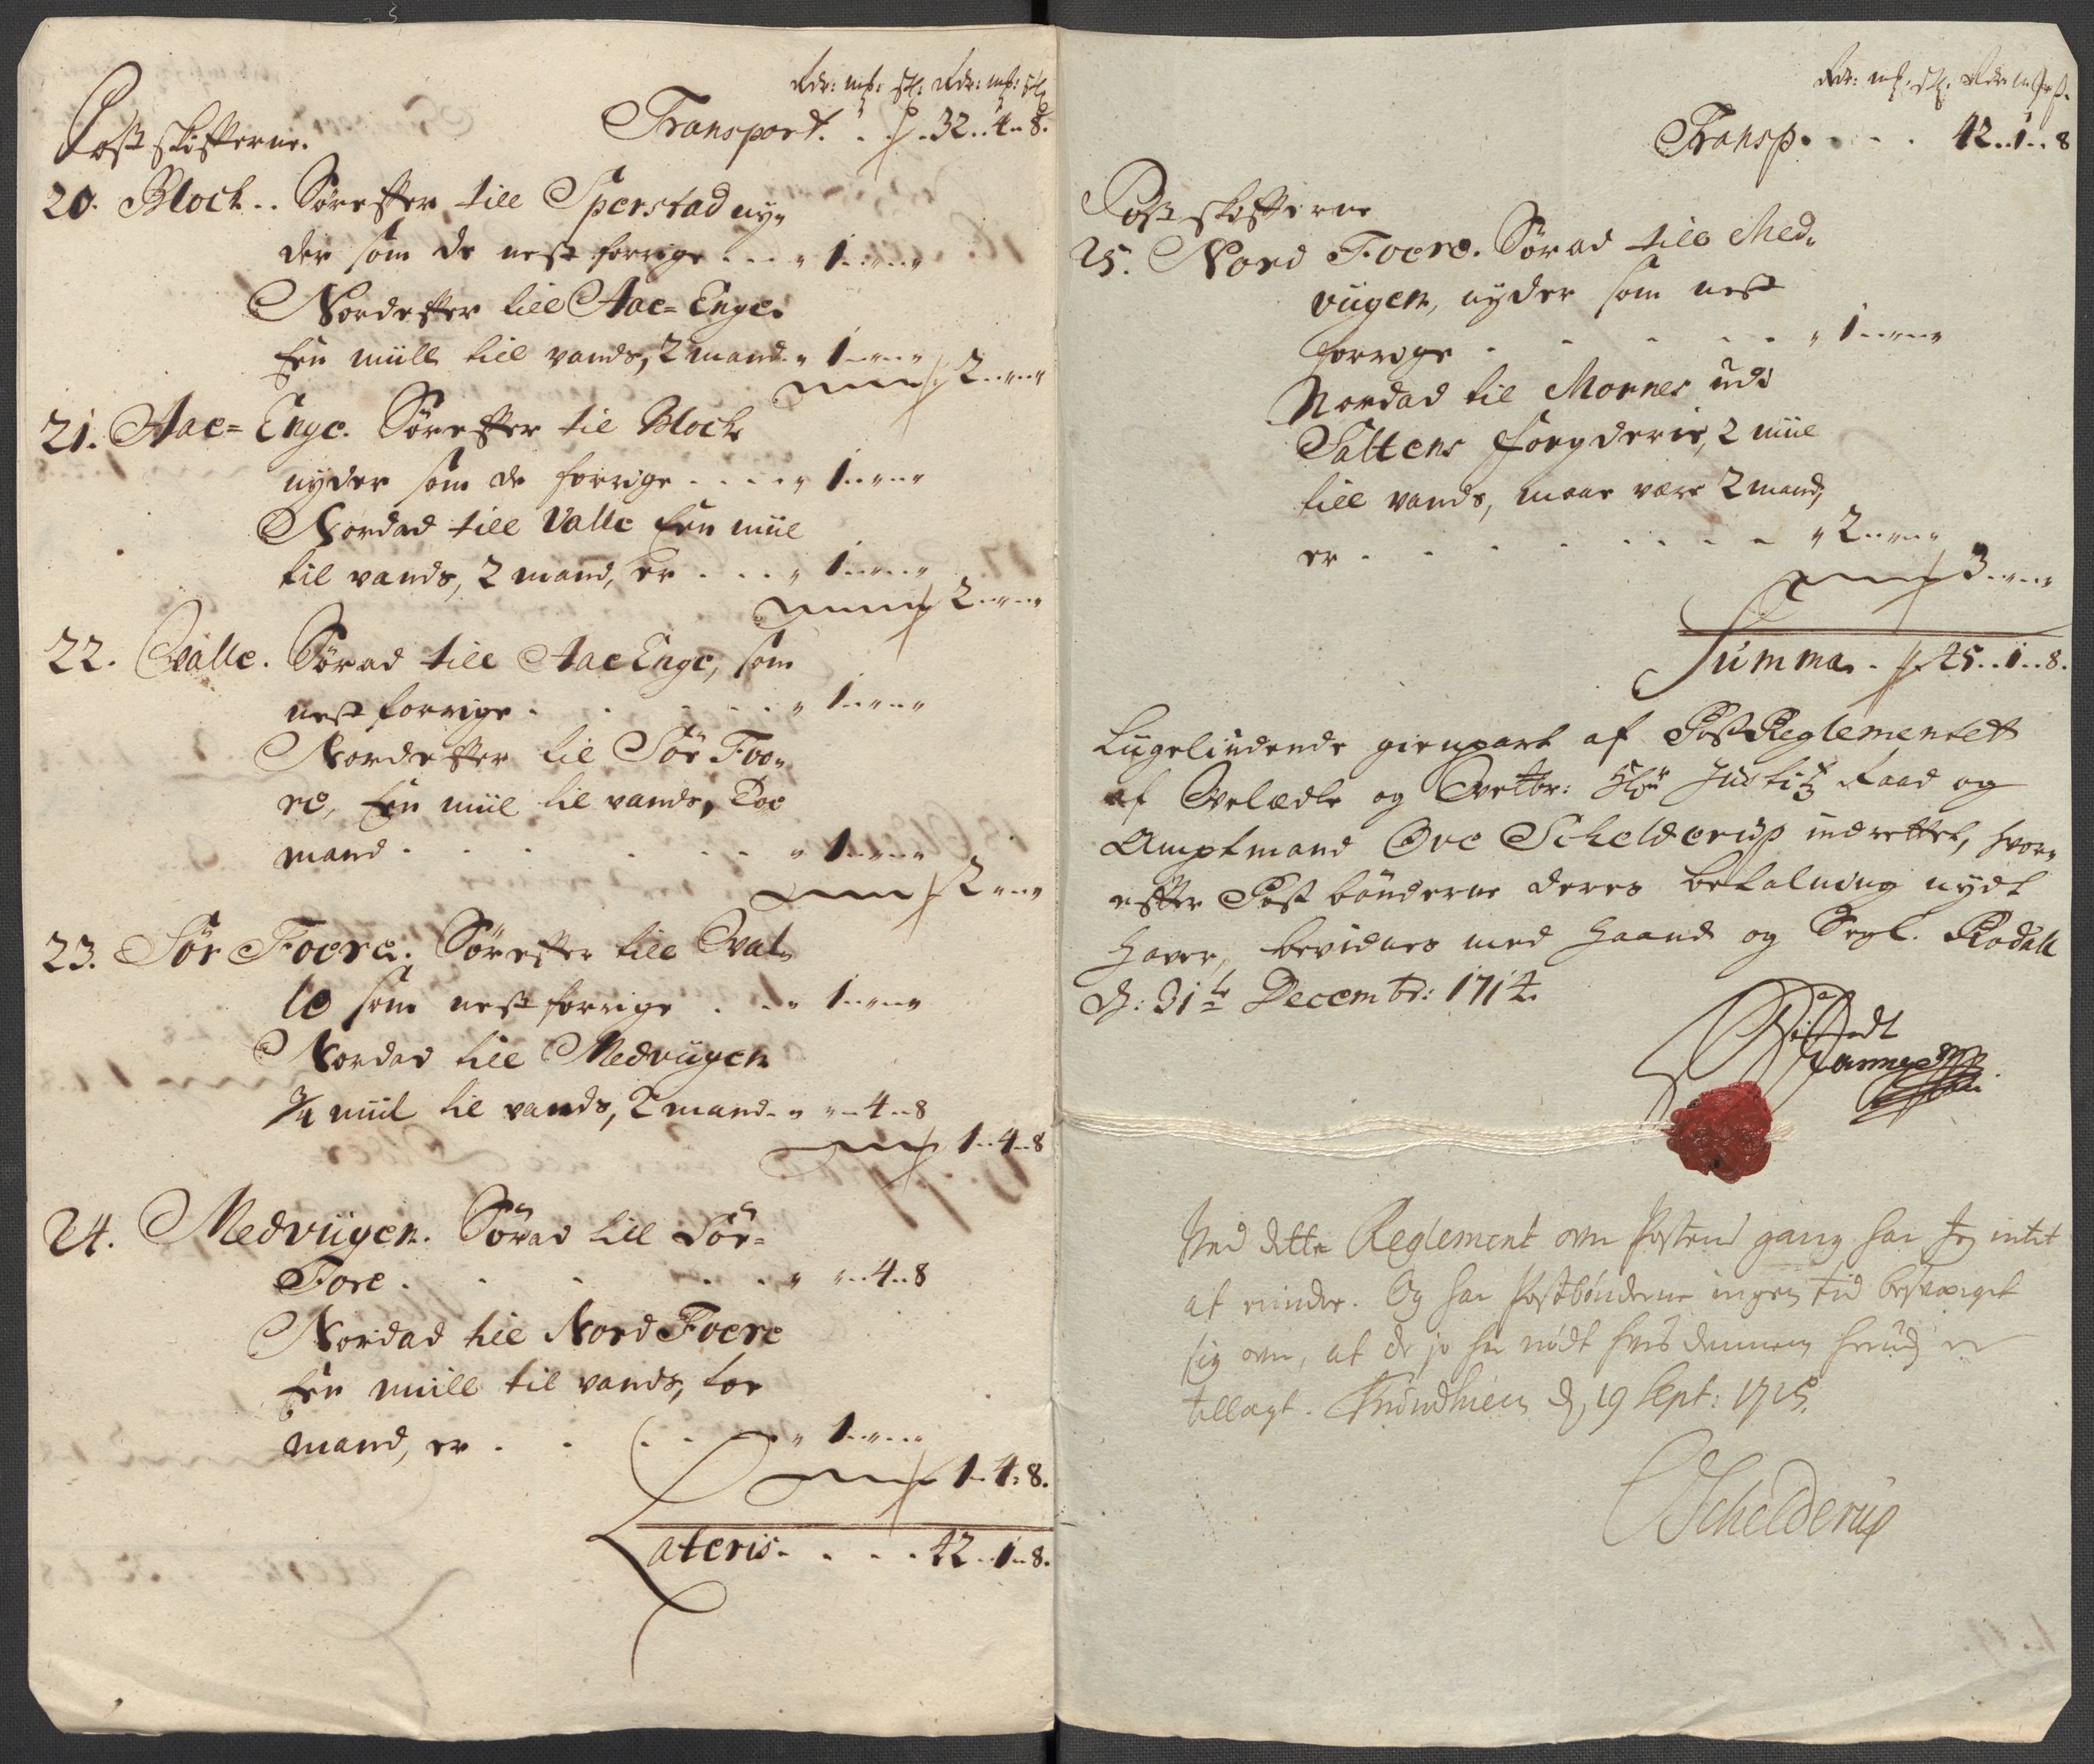 Rdr: mk: sk: Rdr: mk: sk
Transport. . . 32..4..8.
Postskifterne.
20. Block.. Sørefter till Sperstad ny„
der som de nest forrige . . . „ 1..„..„
Nordefter till Aae=Enge.
Een miill till vands, 2 mand. „ 1..„..„
2..„..„
21. Aae=Enge. Sørefter til Block
nyder som de forrige . . . . „ 1..„..„
Nordad till Valle Een miil
til vands, 2 mand, er . . . „ 1..„..„
2..„..„
22. Valle. Sørad till AaeEnge, som
nest forrige . . . . . „ 1..„..„
Nordefter til Sør Foo„
re, Een miil til vands, Toe
mand . . . . . . „ 1..„..„
2..„..„
23. Sør Foere. Sørefter till Val„
le som nest forrige . . „ 1..„..„
Nordad till Medviigen
3/4 miil til vands, 2 mand. „ „..4..8
1..4..8
24. Medviigen. Sørad till Sør=
Fore . . . . . „ „..4..8
Nordad till Nord Foere
Een miill til vands, toe
mand, er . . . . . „ 1..„..„
1..4..8.
Lateris. . . . . 42..1..8.
Rdr: mk: sk: Rdr: mk: sk.
Transp. . . . . 42..1..8
Postskifterne
25. Nord Foere. Sørad till Med„
viigen, nyder som nest
forrige . . . . . „ 1..„..„
Nordad til Mornes udi
Saltens fogderie, 2 miil
till vands, maae være 2 mand,
er . . . . . . . . „ 2..„..„
3..„..„
Summa . . 45..1..8.
Ligeliudende gienpart af PostReglementett
af Velædle og Velbr: Hr Justitz Raad og
Amptmand Ove Schelderup indrettet, hvor„
efter Post bønderne deres betalning nydt
haver, bevidnes med Haand og Segl. Rødall
d: 31te Decembr: 1714.
Ved dette Reglement om Postens gang har Jeg intet
at erindre. Og har Postbønderne ingen tid besværget
sig over, at de jo har nødt hvis dennem herudj er
tillagt. Trundhiem d, 19 Sept: 1715.
Schelderup